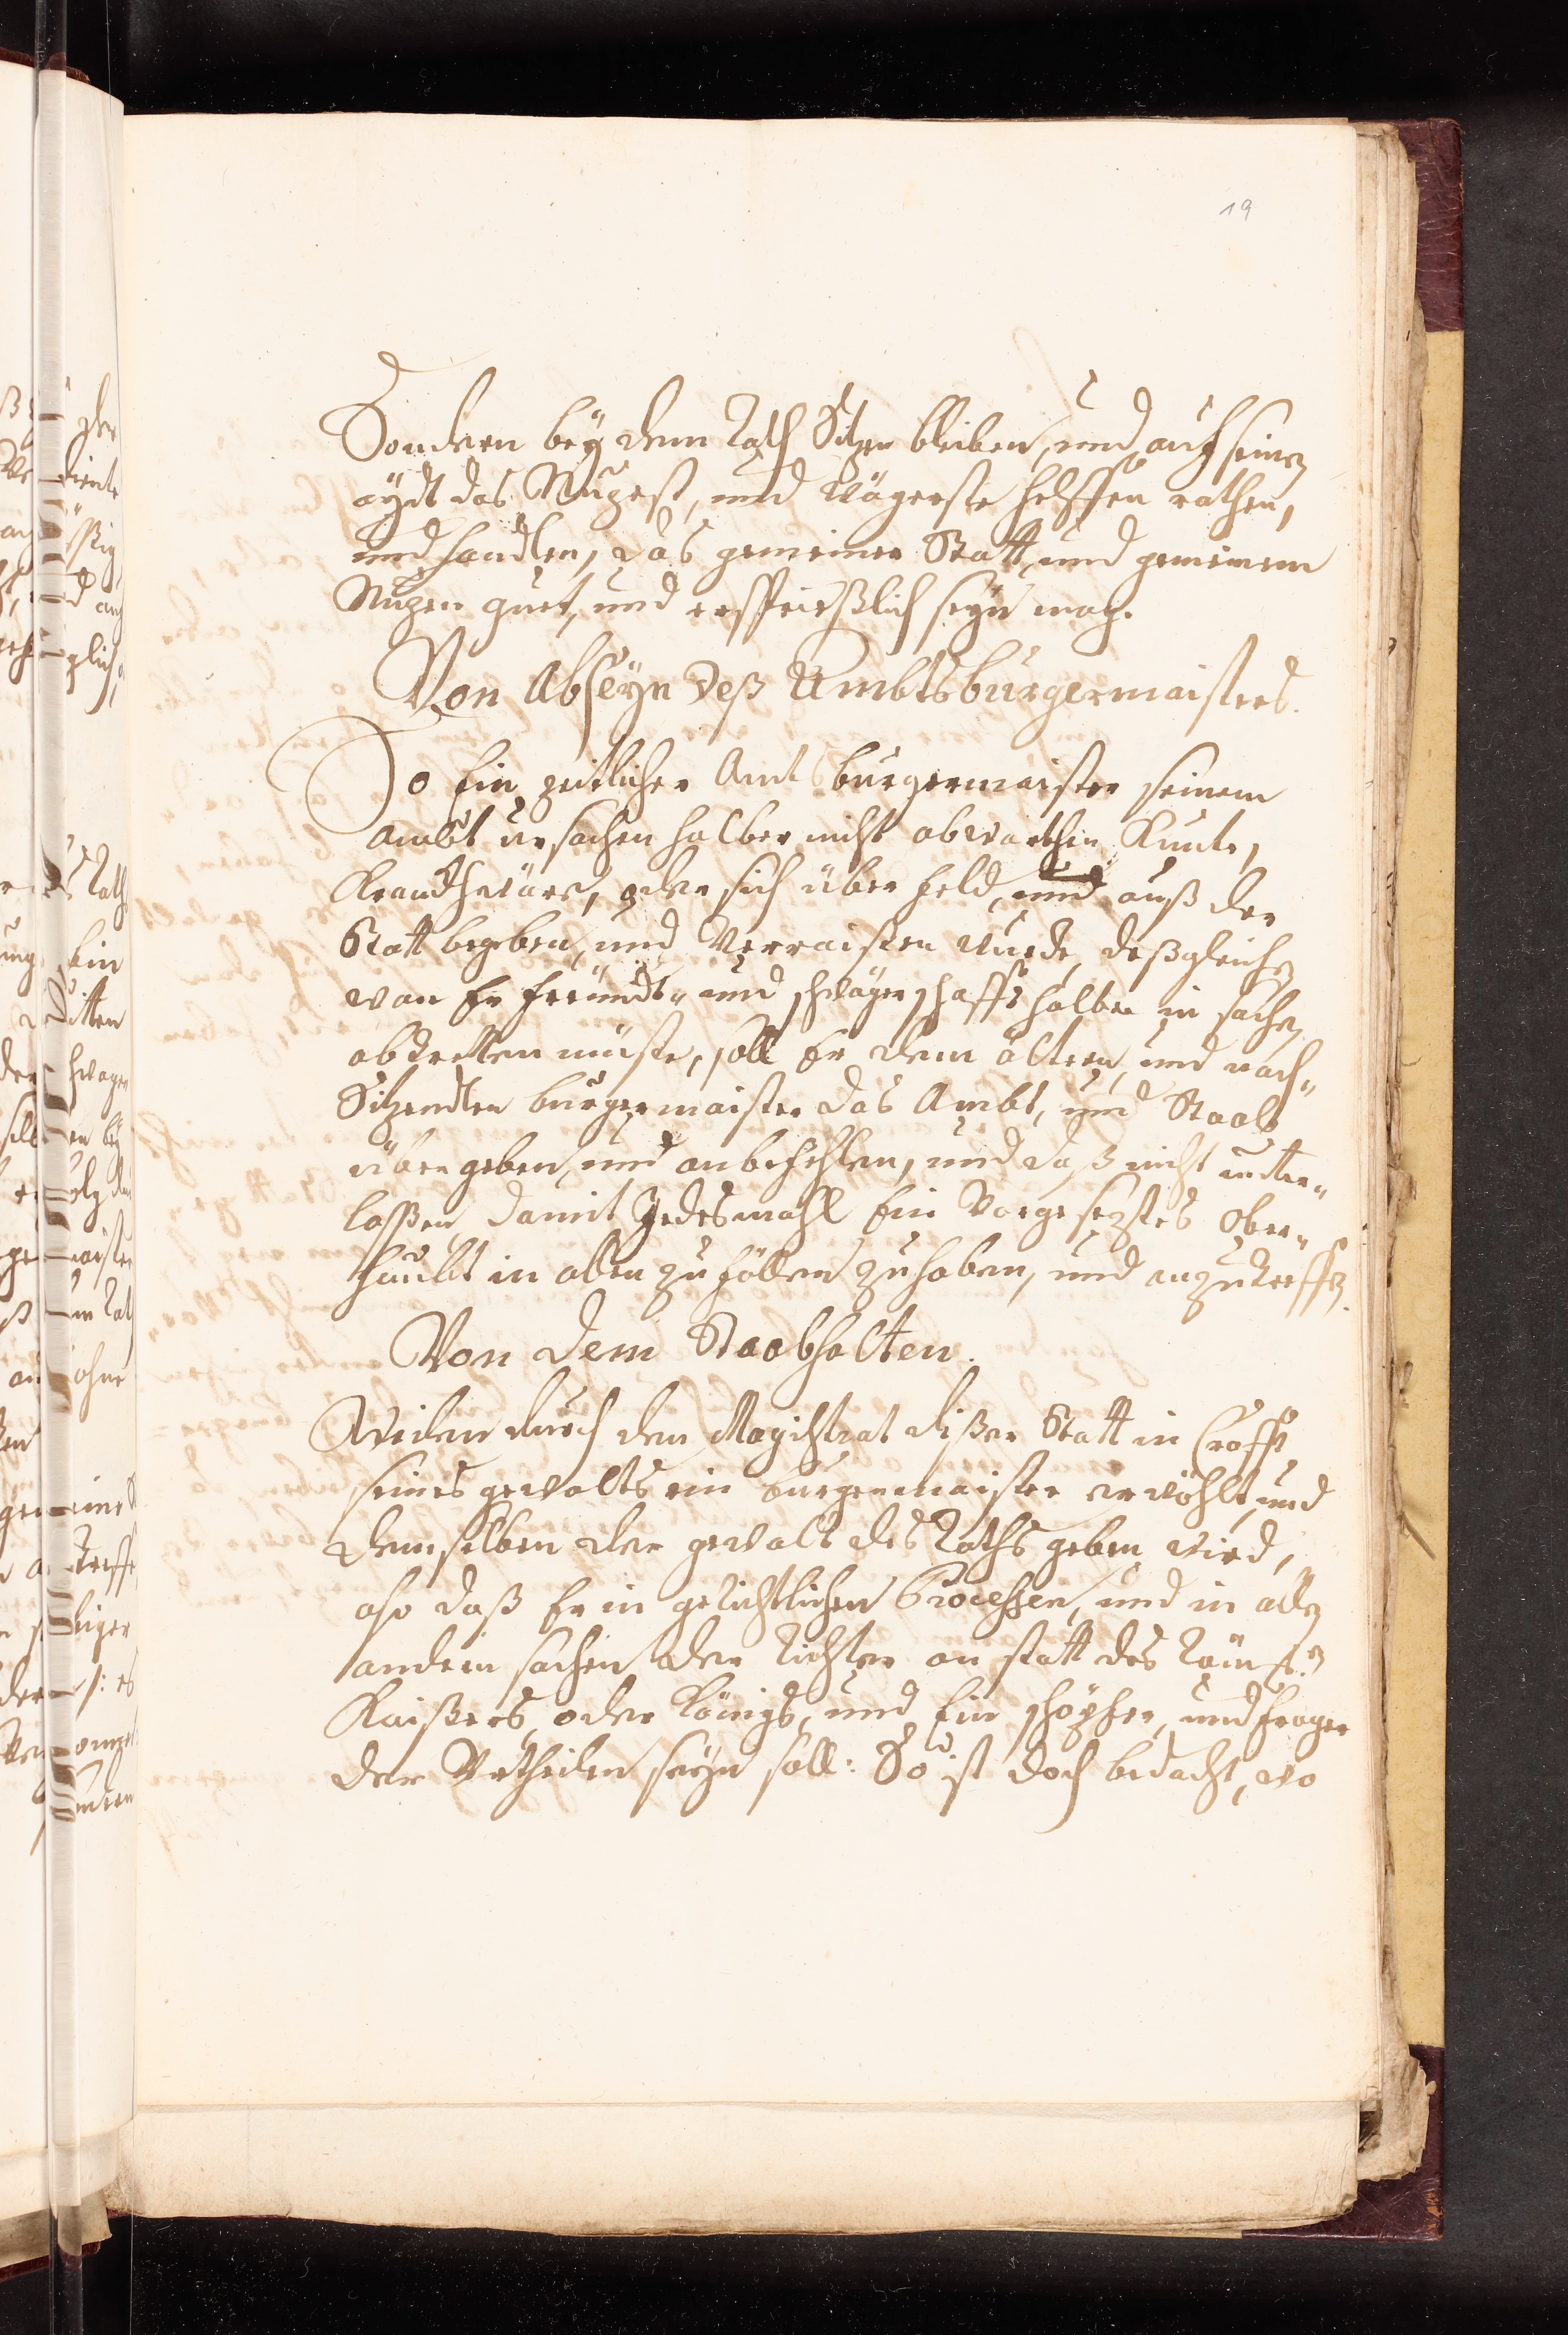 19
Sondern beÿ dem Rath Sitzen bleiben, und auf seinen
aÿdt das Nuzest, und Wägerste helffen rathen,
und handlen, das gemeiner Statt, und gemeinem
Nuzen guet, und ersprießlich seÿn mag.
Von Abseÿn deß Ambtsburgermaisters.
So Ein zeitlicher Amtsburgermaister seinem
ambt ursachen halber nicht abwarthen Kunte,
Kranckh wäre, oder sich über feld, und auß der
Statt begeben, und Verraißen wurde, deßgleichen
wan Er freündt- und schwägerschafft halber in sachen
abtretten müste, soll Er dem ältern, und nach-
Sitzendten burgermaister das Ambt, und Staab
übergeben, und anbefehlen, und daß nicht undter-
lassen, damit Jedesmahl Ein Vorgeseztes Ober-
haubt in allen zufällen zuhaben, und anzutreffen.
Von dem Staabhalten.
Weilen durch den Magistrat dißer Statt in Crafft
seines gewalts ein burgermaister erwöhlt, und
demselben der gewalt des Raths geben wird,
also daß Er in gerichtlichen Processen, und in allen
andern sachen der Richter an statt des Röm:
Kaißers, oder Königs, und Ein schöpfer, und frager
der Urtheilen seÿn soll: So ist doch bedacht, wo